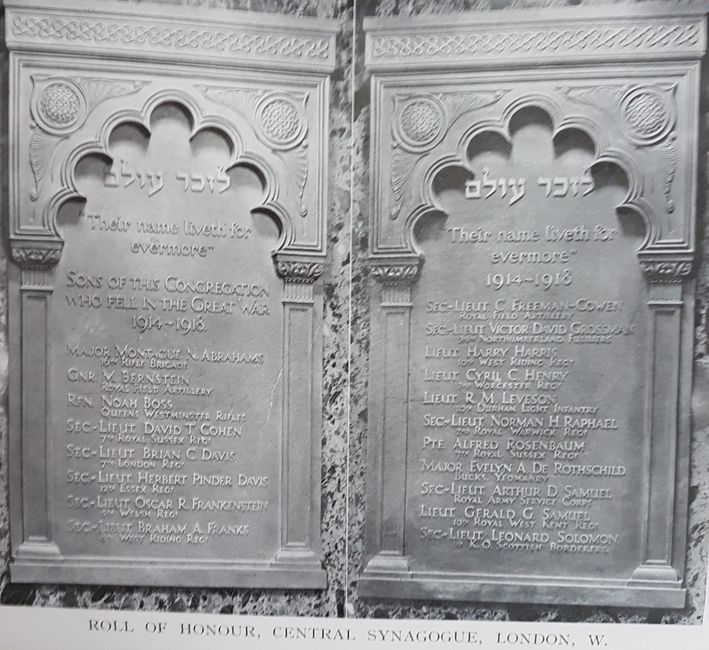 לזכר עולם
"Their name liveth for
evermore"
Sons of this Congregation
who fell in the Great War
1914~1918.
Major Montague N. Abrahams
Rifle Brigade
Gnr. M. Bernstein
Royal Field Artillery
Rfn. Noah Boss
Queens Westminster Rifles
Sec-Lieut David T Cohen
7th Royal Sussex Regt
Sec-Lieut Brian C Davis
7th London Regt
Sec-Lieut Herbert Pinder Davis
Essex Regt
Sec-Lieut Oscar R. Frankenstein
Welsh Regt
Sec-Lieut Braham A. Franks
West Riding Regt
לזכר עולם
"Their name liveth for
evermore"
1914~1918
Sec-Lieut C Freeman-Cowen
Royal Field Artillery
Sec-Lieut Victor David Grossman
Northumberland Fusiliers
Lieut Harry Harris
10th West Riding Regt
Lieut Cyril C. Henry
2nd Worcester Regt
Lieut R. M. Leveson
10th Durham Light Infantry
Sec-Lieut Norman H. Raphael
2nd Royal Warwick Regt
Pte. Alfred Rosenbaum
7th Royal Sussex Regt
Major Evelyn A. De Rothschild
Bucks. Yeomanry
Sec-Lieut Arthur D. Samuel
Royal Army Service Corps
Lieut Gerald G Samuel
10th Royal West Kent Regt
Sec-Lieut Leonard Solomon
K.O. Scottish Borderers
ROLL OF HONOUR, CENTRAL SYNAGOGUE, LONDON, W.